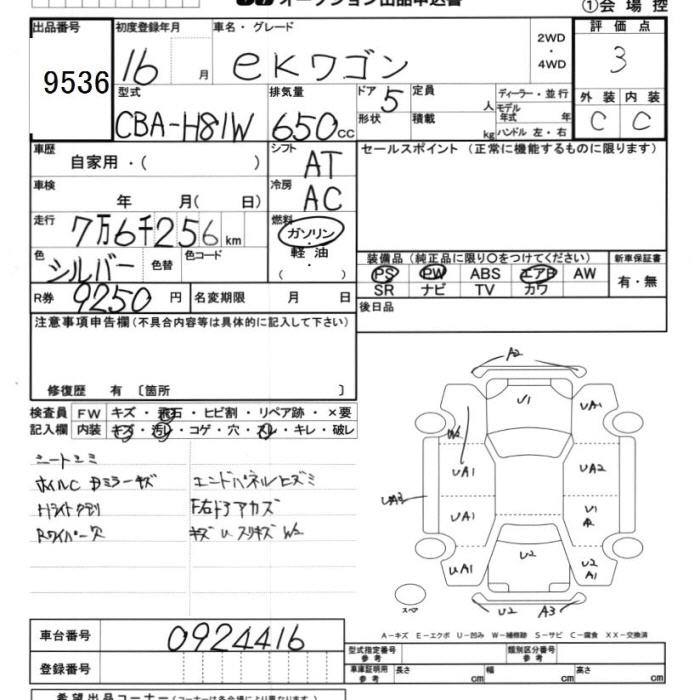 オークション出品申込書
①会場控
出品番号
9536
初度登録年月
16 月
車名・グレード
eKワゴン
2WD
・
4WD
評価点
3
型式
CBA-H81W
排気量
650cc
ドア
5
形状
定員
人
積載
kg
ディーラー・並行
モデル年式
年
ハンドル 左・右
外装
C
内装
C
車歴
自家用・( )
シフト
AT
セールスポイント (正常に機能するものに限ります)
車検
年 月( 日)
冷房
AC
走行
7万6千256km
燃料
ガソリン
・
軽油
( )
色
シルバー
色替
色コード
R券
9250円
名変期限
月 日
装備品 (純正品に限り○をつけてください)
PS PW ABS エアB AW
SR ナビ TV カワ
新車保証書
有・無
後日品
注意事項申告欄 (不具合内容等は具体的に記入して下さい)
修復歴 有 〔箇所 〕
検査員
記入欄
FW
キズ・飛石・ヒビ割・リペア跡・×要
内装
キズ・汚レ・コゲ・穴・スレ・キレ・破レ
シートユミ
ホイルC Dミラーキズ
Hライトクモリ
Rワイパー欠
エンドパネルヒズミ
F右ドアカズ
キズ U スリキズ W2
A2
U1
UA1
W2
UA1
UA2
UA3
UA1
U1
A2
UA1
U2
U2
A1
スペア
U2
A3
A－キズ E－エクボ U－凹み W－補修跡 S－サビ C－腐食 XX－交換済
車台番号
0924416
登録番号
型式指定番号
参考
類別区分番号
参考
車庫証明用
参考
長さ
cm
幅
cm
高さ
cm
希望出品コーナー